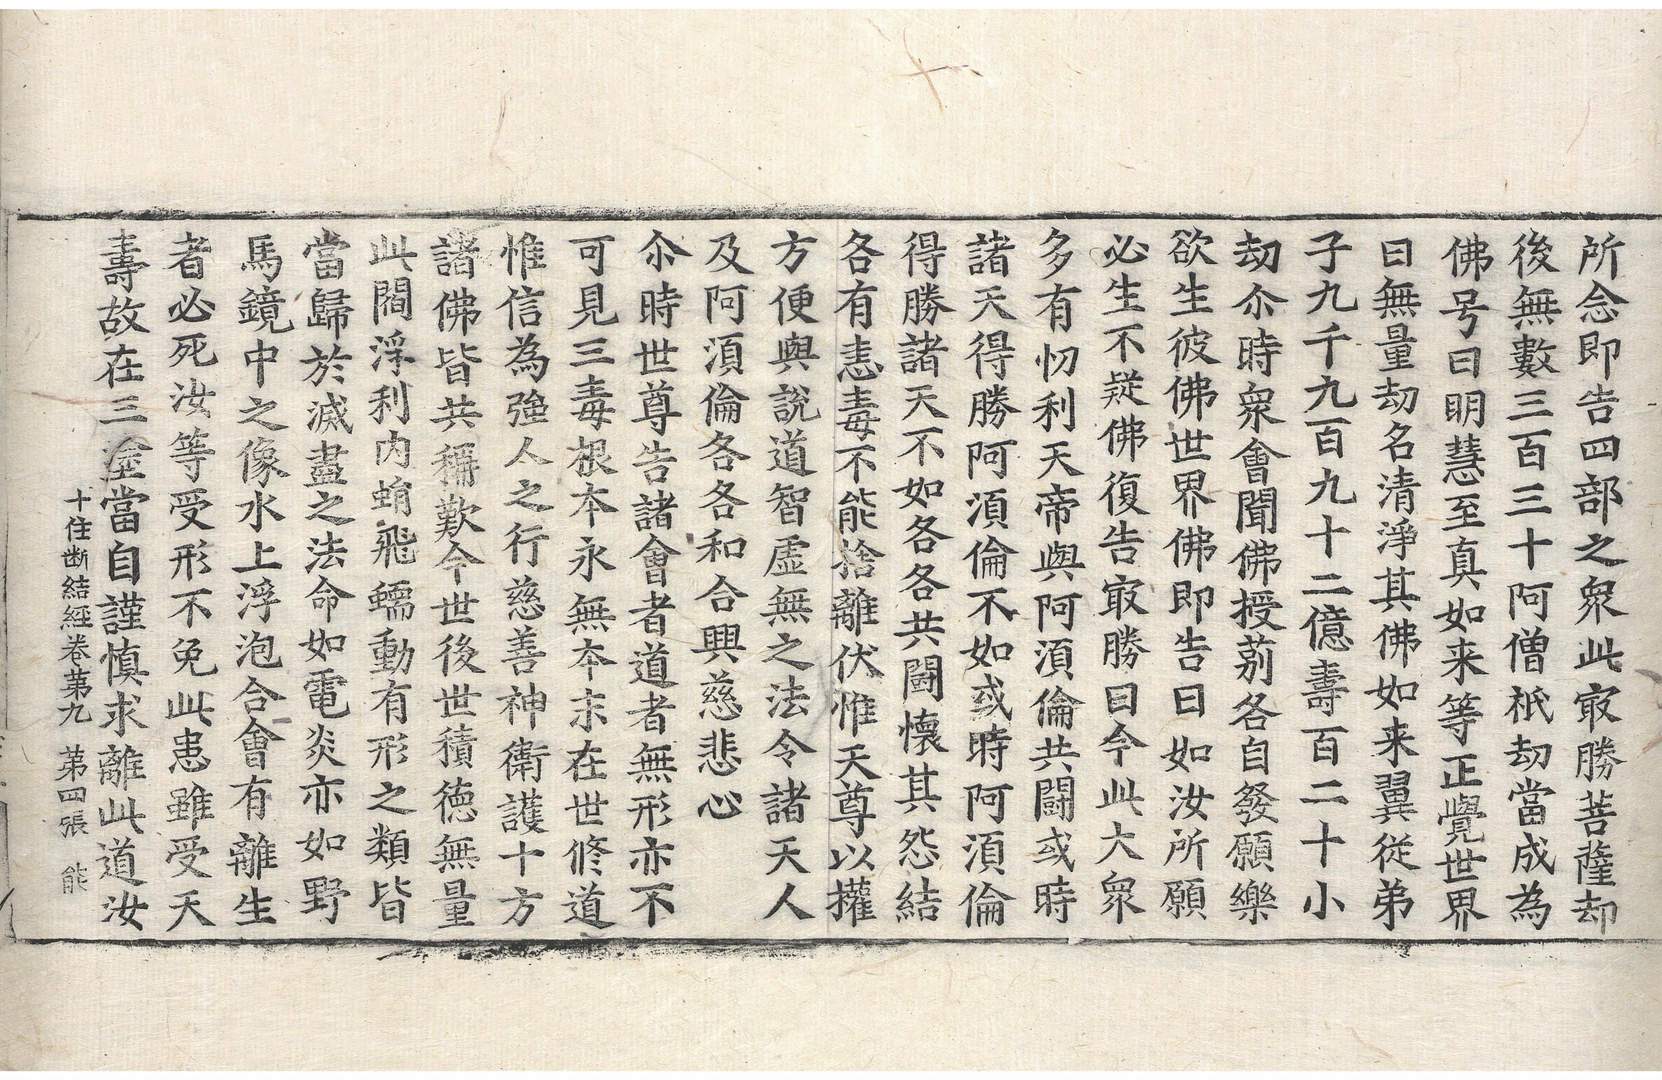 所念即告四部之衆此㝡勝菩薩却
後無數三百三十阿僧祇劫當成為
佛号曰明慧至真如来等正覺世界
曰無量劫名清淨其佛如来翼従弟
子九千九百九十二億壽百二十小
劫尒時衆會聞佛授莂各自發願樂
欲生彼佛世界佛即告曰如汝所願
必生不疑佛復告㝡勝曰今此大衆
多有忉利天帝與阿湏倫共鬪或時
諸天得勝阿湏倫不如或時阿湏倫
得勝諸天不如各各共鬪懐其怨結
各有恚毒不能捨離伏惟天尊以擢
方便與說道智虛無之法令諸天人
及阿湏倫各各和合興慈悲心
尒時世尊告諸會者道者無形亦不
可見三毒根本永無夲末在世修道
惟信為強人之行慈善神衛護十方
諸佛皆共稱歎今世後世積德無量
此閻浮利內蛸飛蠕動有形之類皆
當歸於滅盡之法命如電炎亦如野
馬鏡中之像水上浮泡合會有離生
者必死汝等受形不免此患雖受天
壽故在三塗當自謹慎求離此道汝
十住断結經卷第九 第四張 能